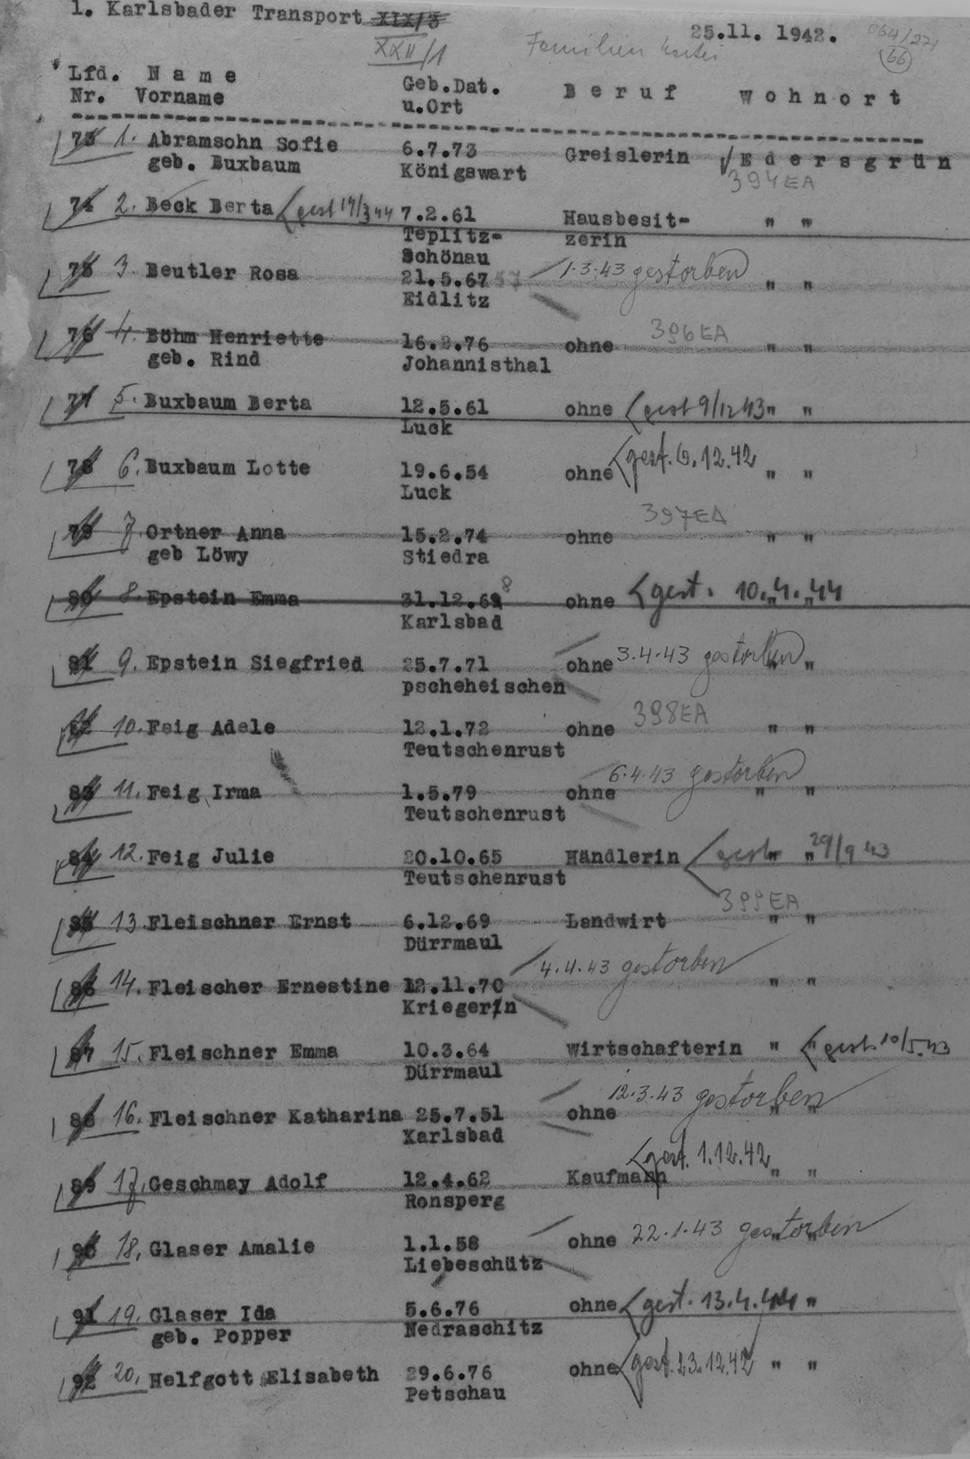 1. Karlsbader Transport XIX/3
XXII/1
25.11. 1942.
66
Lfd. Name Geb.Dat. Beruf Wohnort
Nr. Vorname u.Ort
73 1. Abramsohn Sofie 6.7.73 Greislerin Edersgrün
geb. Buxbaum Königswart 394EA
74 2. Beck Berta gest 19/3 44 7.2.61 Hausbesit- " "
Teplitz- zerin
Schönau
75 3. Beutler Rosa 21.5.67 57 1.3.43 gestorben " "
Eidlitz
76 4. Böhm Henriette 16.2.76 ohne 396EA " "
geb. Rind Johannisthal
77 5. Buxbaum Berta 12.5.61 ohne gest 9/12 43 " "
Luck
78 6. Buxbaum Lotte 19.6.54 ohne gest. 6.12.42 " "
Luck
79 7. Ortner Anna 15.2.74 ohne 397EA " "
geb Löwy Stiedra
80 8. Epstein Emma 31.12.68 ohne gest. 10.4.44 " "
Karlsbad
81 9. Epstein Siegfried 25.7.71 ohne 3.4.43 gestorben " "
pscheheischen
82 10. Feig Adele 12.1.72 ohne 398EA " "
Teutschenrust
83 11. Feig Irma 1.5.79 ohne 6.4.43 gestorben " "
Teutschenrust
84 12. Feig Julie 20.10.65 Händlerin gest 29/9 43 " "
Teutschenrust
399EA
85 13. Fleischner Ernst 6.12.69 Landwirt " "
Dürrmaul
86 14. Fleischer Ernestine 12.11.70 4.4.43 gestorben " "
Kriegerin
87 15. Fleischner Emma 10.3.64 Wirtschafterin " " gest. 10/5.43
Dürrmaul
88 16. Fleischner Katharina 25.7.51 ohne 12.3.43 gestorben " "
Karlsbad
89 17. Geschmay Adolf 12.4.62 Kaufmann gest. 1.12.42 " "
Ronsperg
90 18. Glaser Amalie 1.1.58 ohne 22.1.43 gestorben " "
Liebeschütz
91 19. Glaser Ida 5.6.76 ohne gest. 13.4.44 "
geb. Popper Nedraschitz
92 20. Helfgott Elisabeth 29.6.76 ohne gest. 23.12.42 " "
Petschau